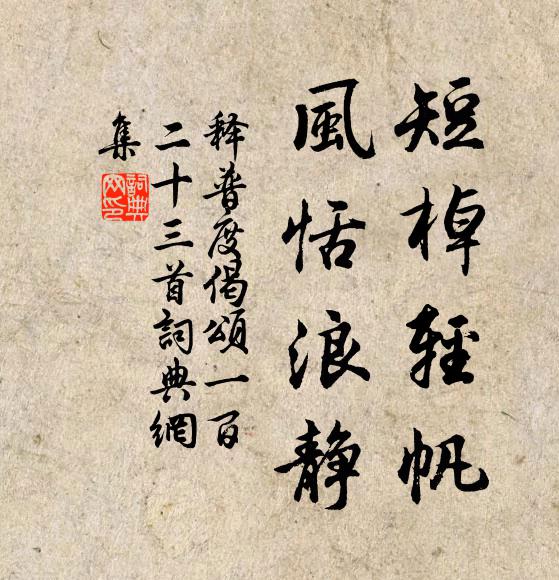 短棹輕帆
風恬浪静
释普度偈頌一百
二十三首詞典網
集
詞典網印